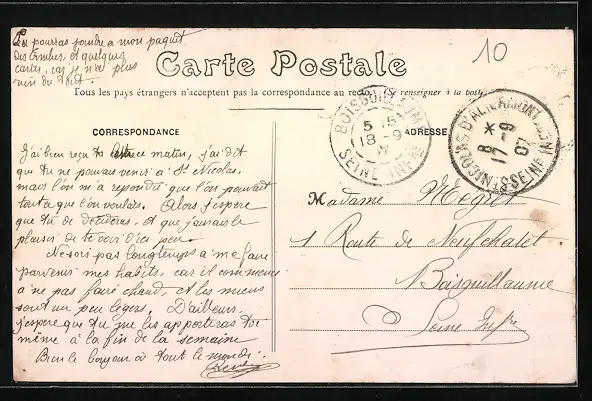 Tu pourras joindre a mon paquet
des timbres, et quelques
cartes, car je n'ai plus
rien du tout.
10
Carte Postale
Tous les pays étrangers n'acceptent pas la correspondance au recto. (Se renseigner à la poste)
CORRESPONDANCE
ADRESSE
BOISGUILLAUME
5 15
18 -9
07
SEINE INFRE
ST NICOLAS D'ALIERMONT
*
18 -9
07
SEINE INF
J'ai bien reçu ta lettre ce matin, j'ai dit
que tu ne pouvais venir à St Nicolas,
mais l'on m'a répondu que l'on pouvait
tant que l'on voulais. Alors j'espère
que tu te décideras. et que j'aurais le
plaisir de te voir d'ici peu.
Ne sois pas longtemps à me faire
parvenir mes habits, car il commence
à ne pas faire chaud, et les miens
sont un peu légers. D'ailleurs,
j'espère que tu me les apporteras toi
même à la fin de la semaine
Bien le bonjour à tout le monde.
Madame
1 Route de Neufchatel
Boisguillaume
Seine Infre